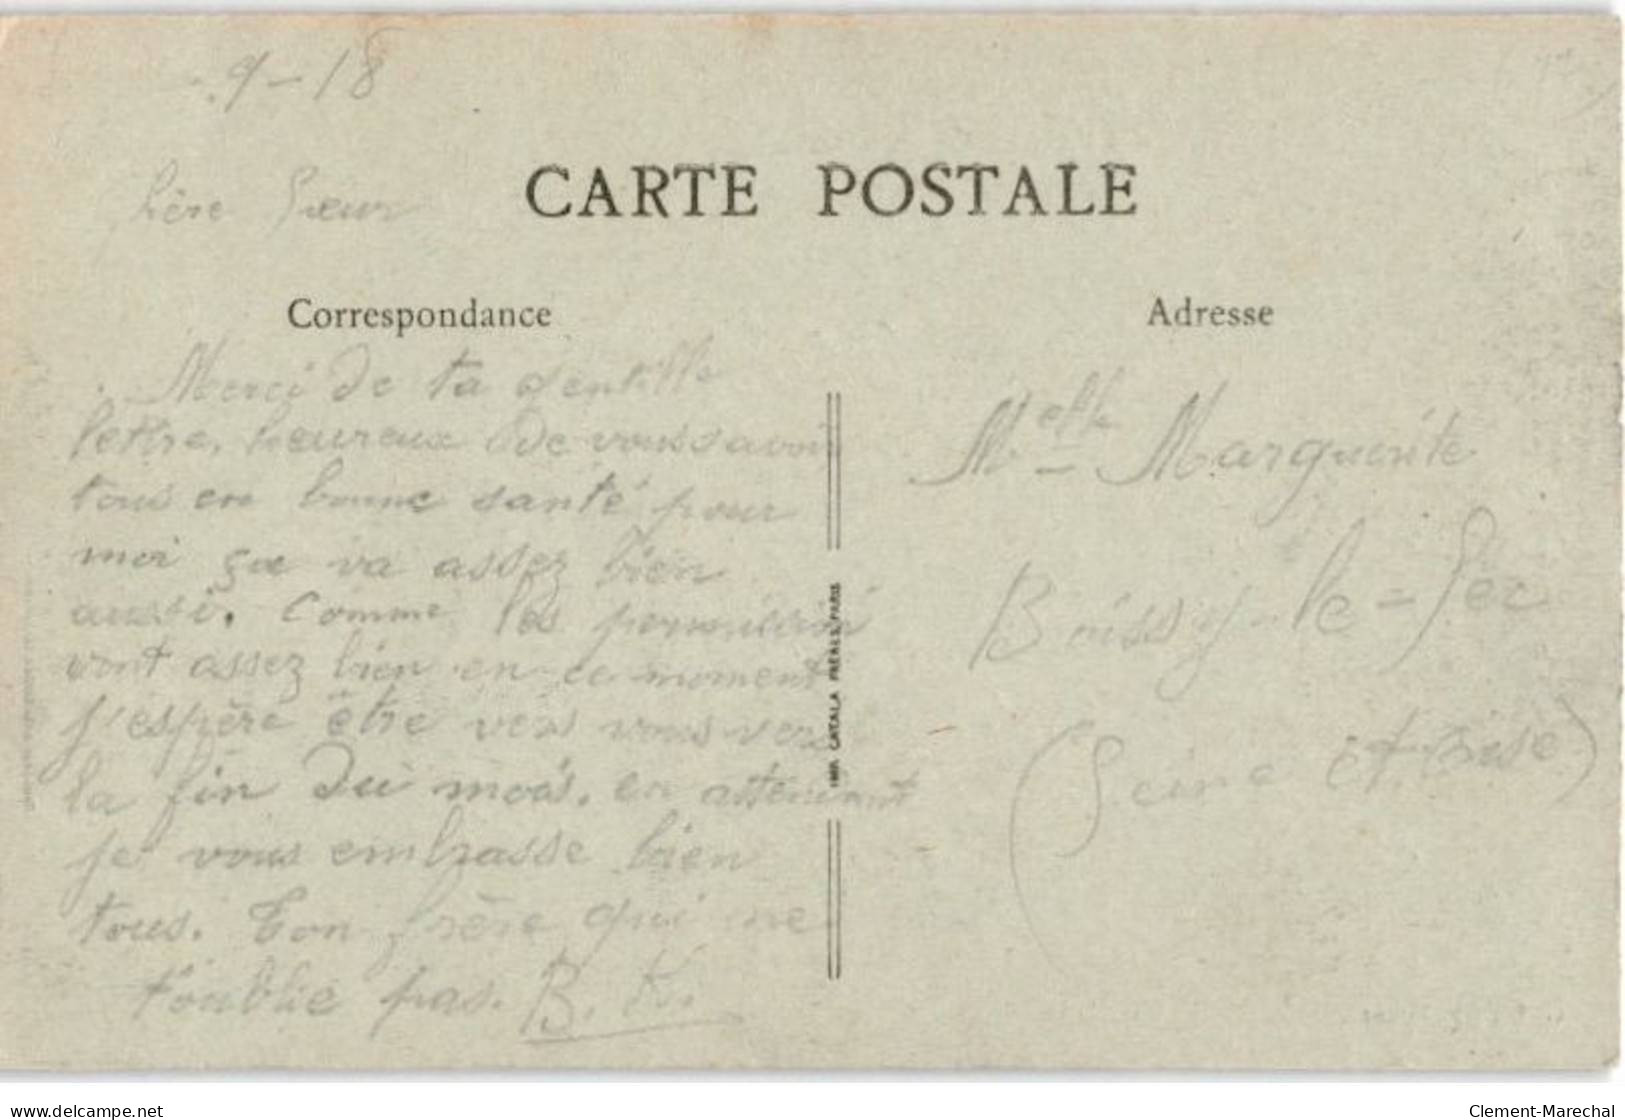 9-18
CARTE POSTALE
Chère Sœur
Correspondance
Merci de ta gentille
lettre, heureux de vous savoir
tous en bonne santé pour
moi ça va assez bien
aussi. Comme les permissions
vont assez bien en ce moment
j'espère être vers vous vers
la fin du mois. en attendant
je vous embrasse bien
tous. Ton frère qui ne
t'oublie pas. B. K.
IMP. CATALA FRÈRES, PARIS
Adresse
Melle Marguerite
Boissy-le-Sec
(Seine et Oise)
delcampe.net
Clement-Marechal